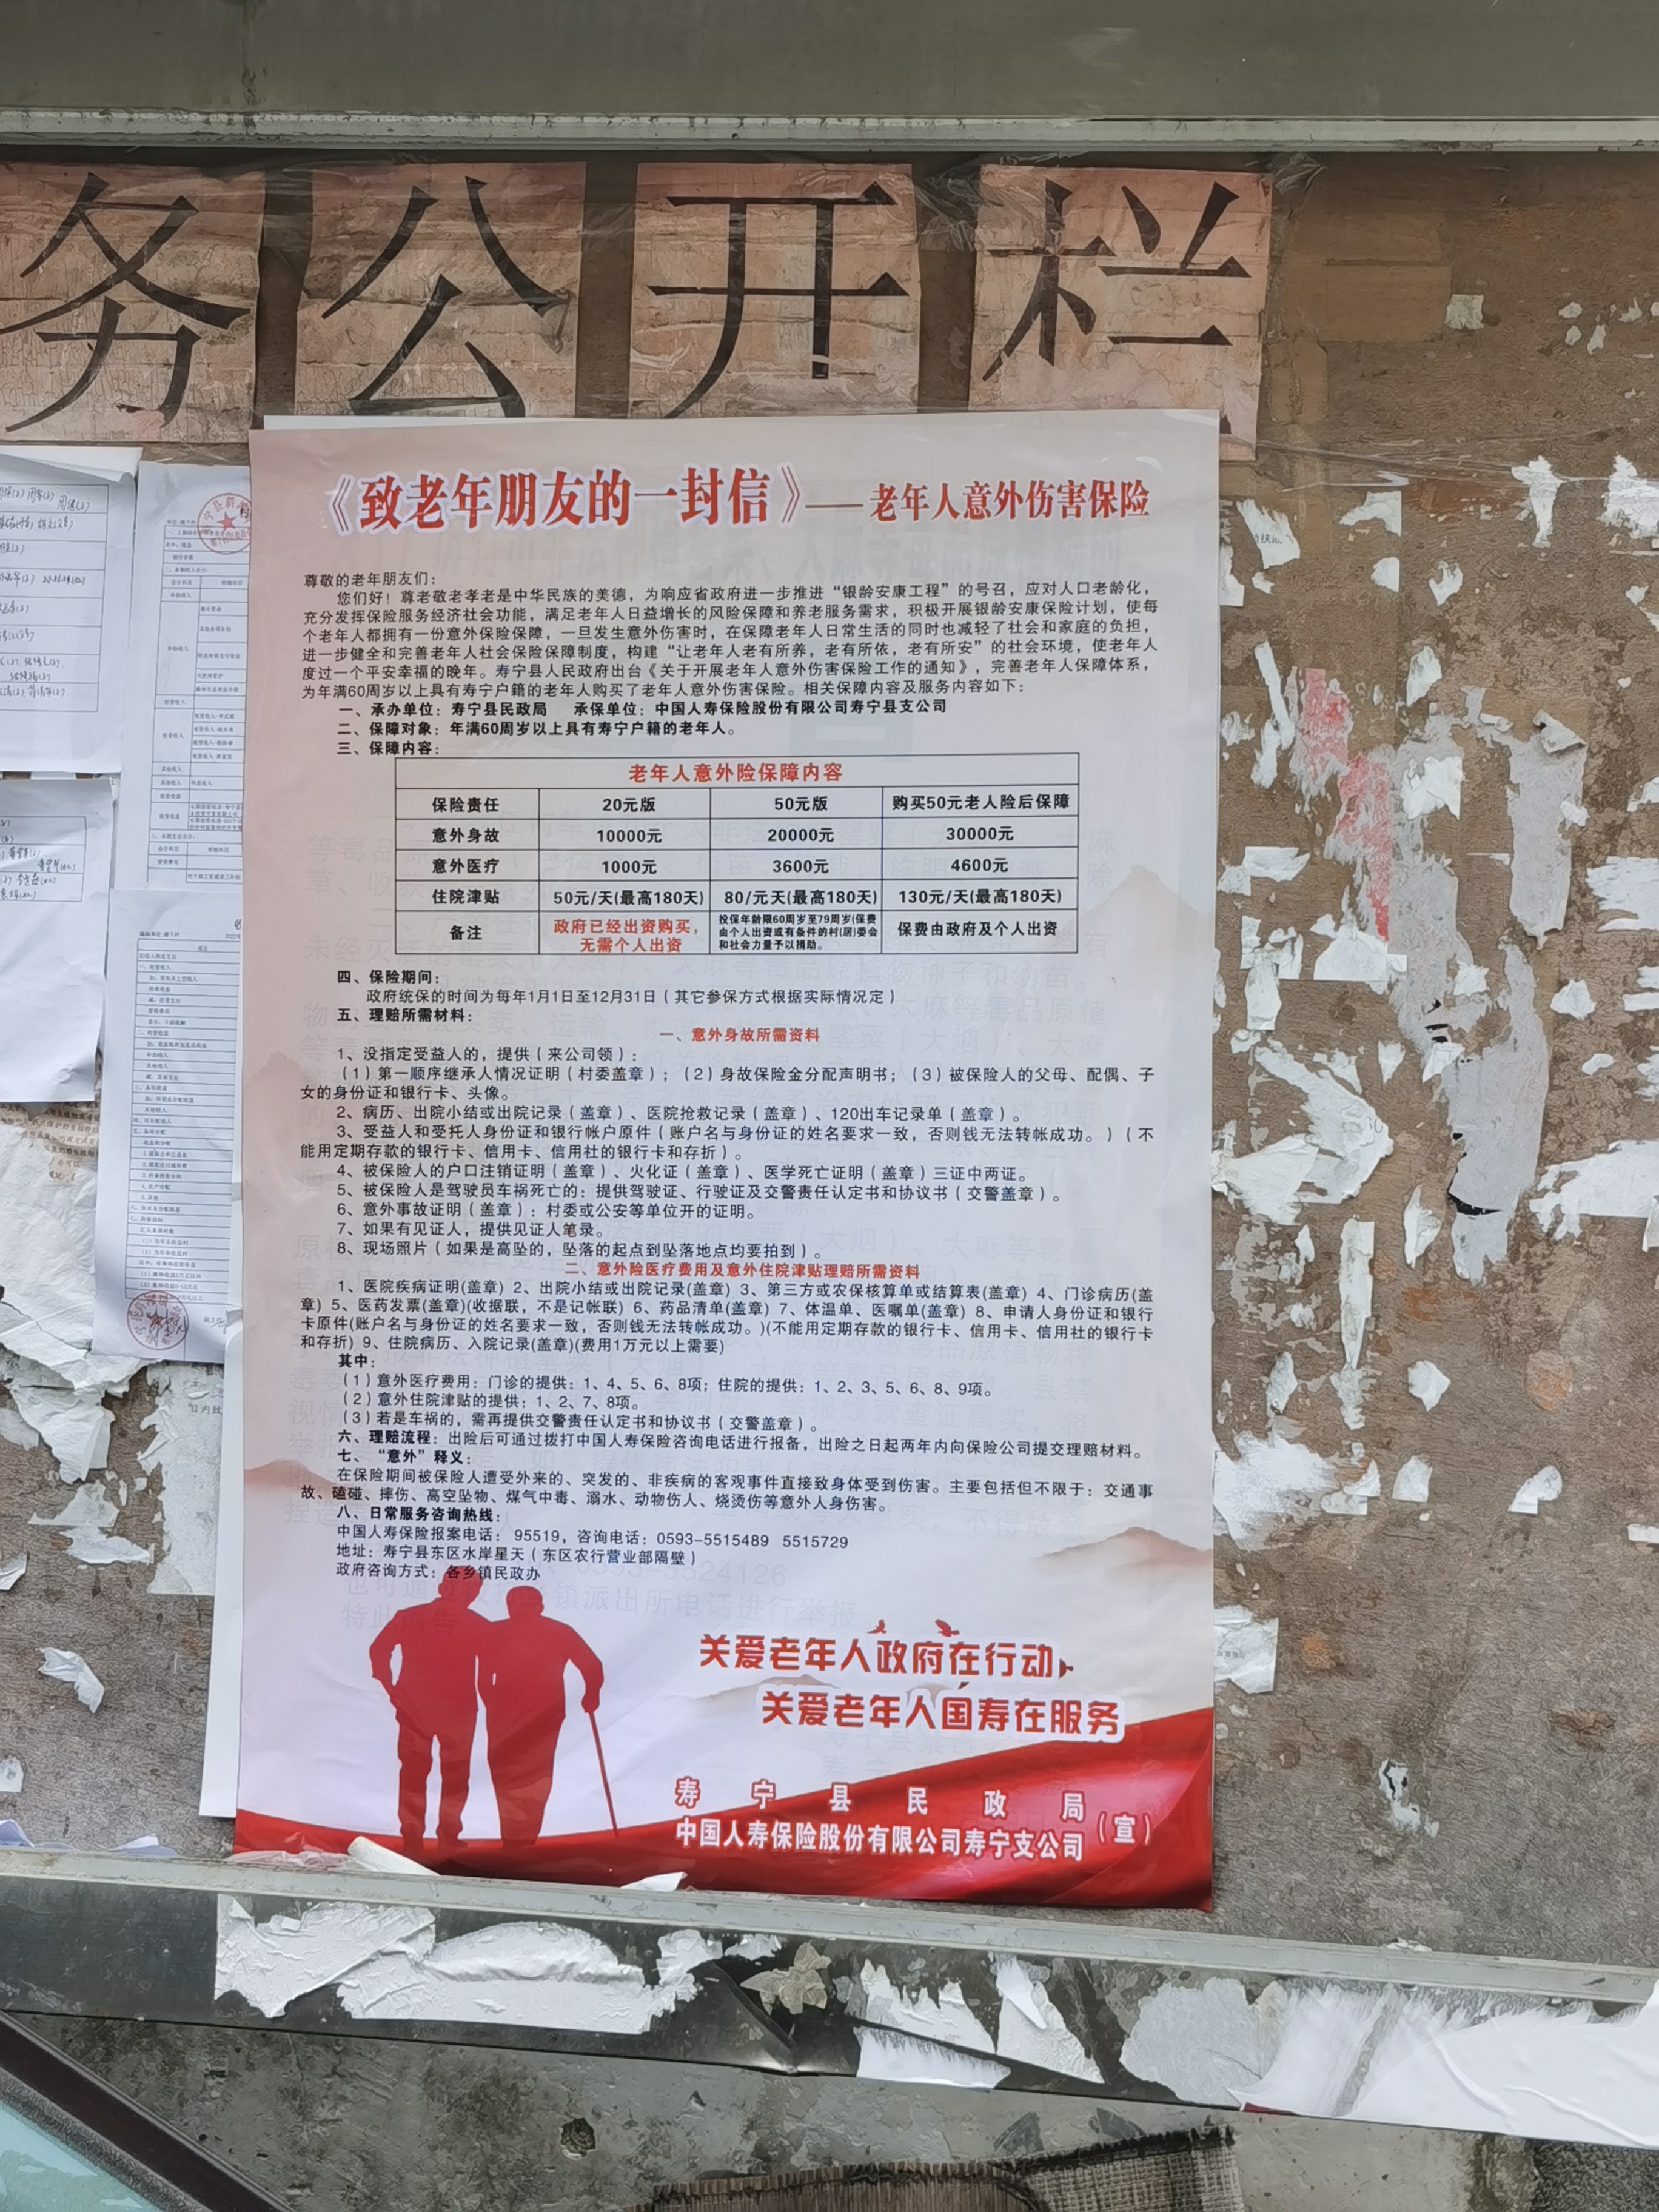 务公开栏
《致老年朋友的一封信》——老年人意外伤害保险
尊敬的老年朋友们：
您们好！尊老敬老孝老是中华民族的美德，为响应省政府进一步推进“银龄安康工程”的号召，应对人口老龄化，
充分发挥保险服务经济社会功能，满足老年人日益增长的风险保障和养老服务需求，积极开展银龄安康保险计划，使每
个老年人都拥有一份意外保险保障，一旦发生意外伤害时，在保障老年人日常生活的同时也减轻了社会和家庭的负担，
进一步健全和完善老年人社会保险保障制度，构建“让老年人老有所养，老有所依，老有所安”的社会环境，使老年人
度过一个平安幸福的晚年。寿宁县人民政府出台《关于开展老年人意外伤害保险工作的通知》，完善老年人保障体系，
为年满60周岁以上具有寿宁户籍的老年人购买了老年人意外伤害保险。相关保障内容及服务内容如下：
一、承办单位：寿宁县民政局 承保单位：中国人寿保险股份有限公司寿宁县支公司
二、保障对象：年满60周岁以上具有寿宁户籍的老年人。
三、保障内容：
老年人意外险保障内容
保险责任 20元版 50元版 购买50元老人险后保障
意外身故 10000元 20000元 30000元
意外医疗 1000元 3600元 4600元
住院津贴 50元/天(最高180天) 80/元天(最高180天) 130元/天(最高180天)
备注 政府已经出资购买，无需个人出资 投保年龄限60周岁至79周岁(保费由个人出资或有条件的村(居)委会和社会力量予以捐助。 保费由政府及个人出资
四、保险期间：
政府统保的时间为每年1月1日至12月31日（其它参保方式根据实际情况定）
五、理赔所需材料：
一、意外身故所需资料
1、没指定受益人的，提供（来公司领）：
（1）第一顺序继承人情况证明（村委盖章）；（2）身故保险金分配声明书；（3）被保险人的父母、配偶、子
女的身份证和银行卡、头像。
2、病历、出院小结或出院记录（盖章）、医院抢救记录（盖章）、120出车记录单（盖章）。
3、受益人和受托人身份证和银行帐户原件（账户名与身份证的姓名要求一致，否则钱无法转帐成功。）（不
能用定期存款的银行卡、信用卡、信用社的银行卡和存折）。
4、被保险人的户口注销证明（盖章）、火化证（盖章）、医学死亡证明（盖章）三证中两证。
5、被保险人是驾驶员车祸死亡的：提供驾驶证、行驶证及交警责任认定书和协议书（交警盖章）。
6、意外事故证明（盖章）：村委或公安等单位开的证明。
7、如果有见证人，提供见证人笔录。
8、现场照片（如果是高坠的，坠落的起点到坠落地点均要拍到）。
二、意外险医疗费用及意外住院津贴理赔所需资料
1、医院疾病证明(盖章) 2、出院小结或出院记录(盖章) 3、第三方或农保核算单或结算表(盖章) 4、门诊病历(盖
章) 5、医药发票(盖章)(收据联，不是记帐联) 6、药品清单(盖章) 7、体温单、医嘱单(盖章) 8、申请人身份证和银行
卡原件(账户名与身份证的姓名要求一致，否则钱无法转帐成功。)(不能用定期存款的银行卡、信用卡、信用社的银行卡
和存折) 9、住院病历、入院记录(盖章)(费用1万元以上需要)
其中：
（1）意外医疗费用：门诊的提供：1、4、5、6、8项；住院的提供：1、2、3、5、6、8、9项。
（2）意外住院津贴的提供：1、2、7、8项。
（3）若是车祸的，需再提供交警责任认定书和协议书（交警盖章）。
六、理赔流程：出险后可通过拨打中国人寿保险咨询电话进行报备，出险之日起两年内向保险公司提交理赔材料。
七、“意外”释义：
在保险期间被保险人遭受外来的、突发的、非疾病的客观事件直接致身体受到伤害。主要包括但不限于：交通事
故、磕碰、摔伤、高空坠物、煤气中毒、溺水、动物伤人、烧烫伤等意外人身伤害。
八、日常服务咨询热线：
中国人寿保险报案电话：95519，咨询电话：0593-5515489 5515729
地址：寿宁县东区水岸星天（东区农行营业部隔壁）
政府咨询方式：各乡镇民政办
关爱老年人政府在行动
关爱老年人国寿在服务
寿宁县民政局
中国人寿保险股份有限公司寿宁支公司（宣）